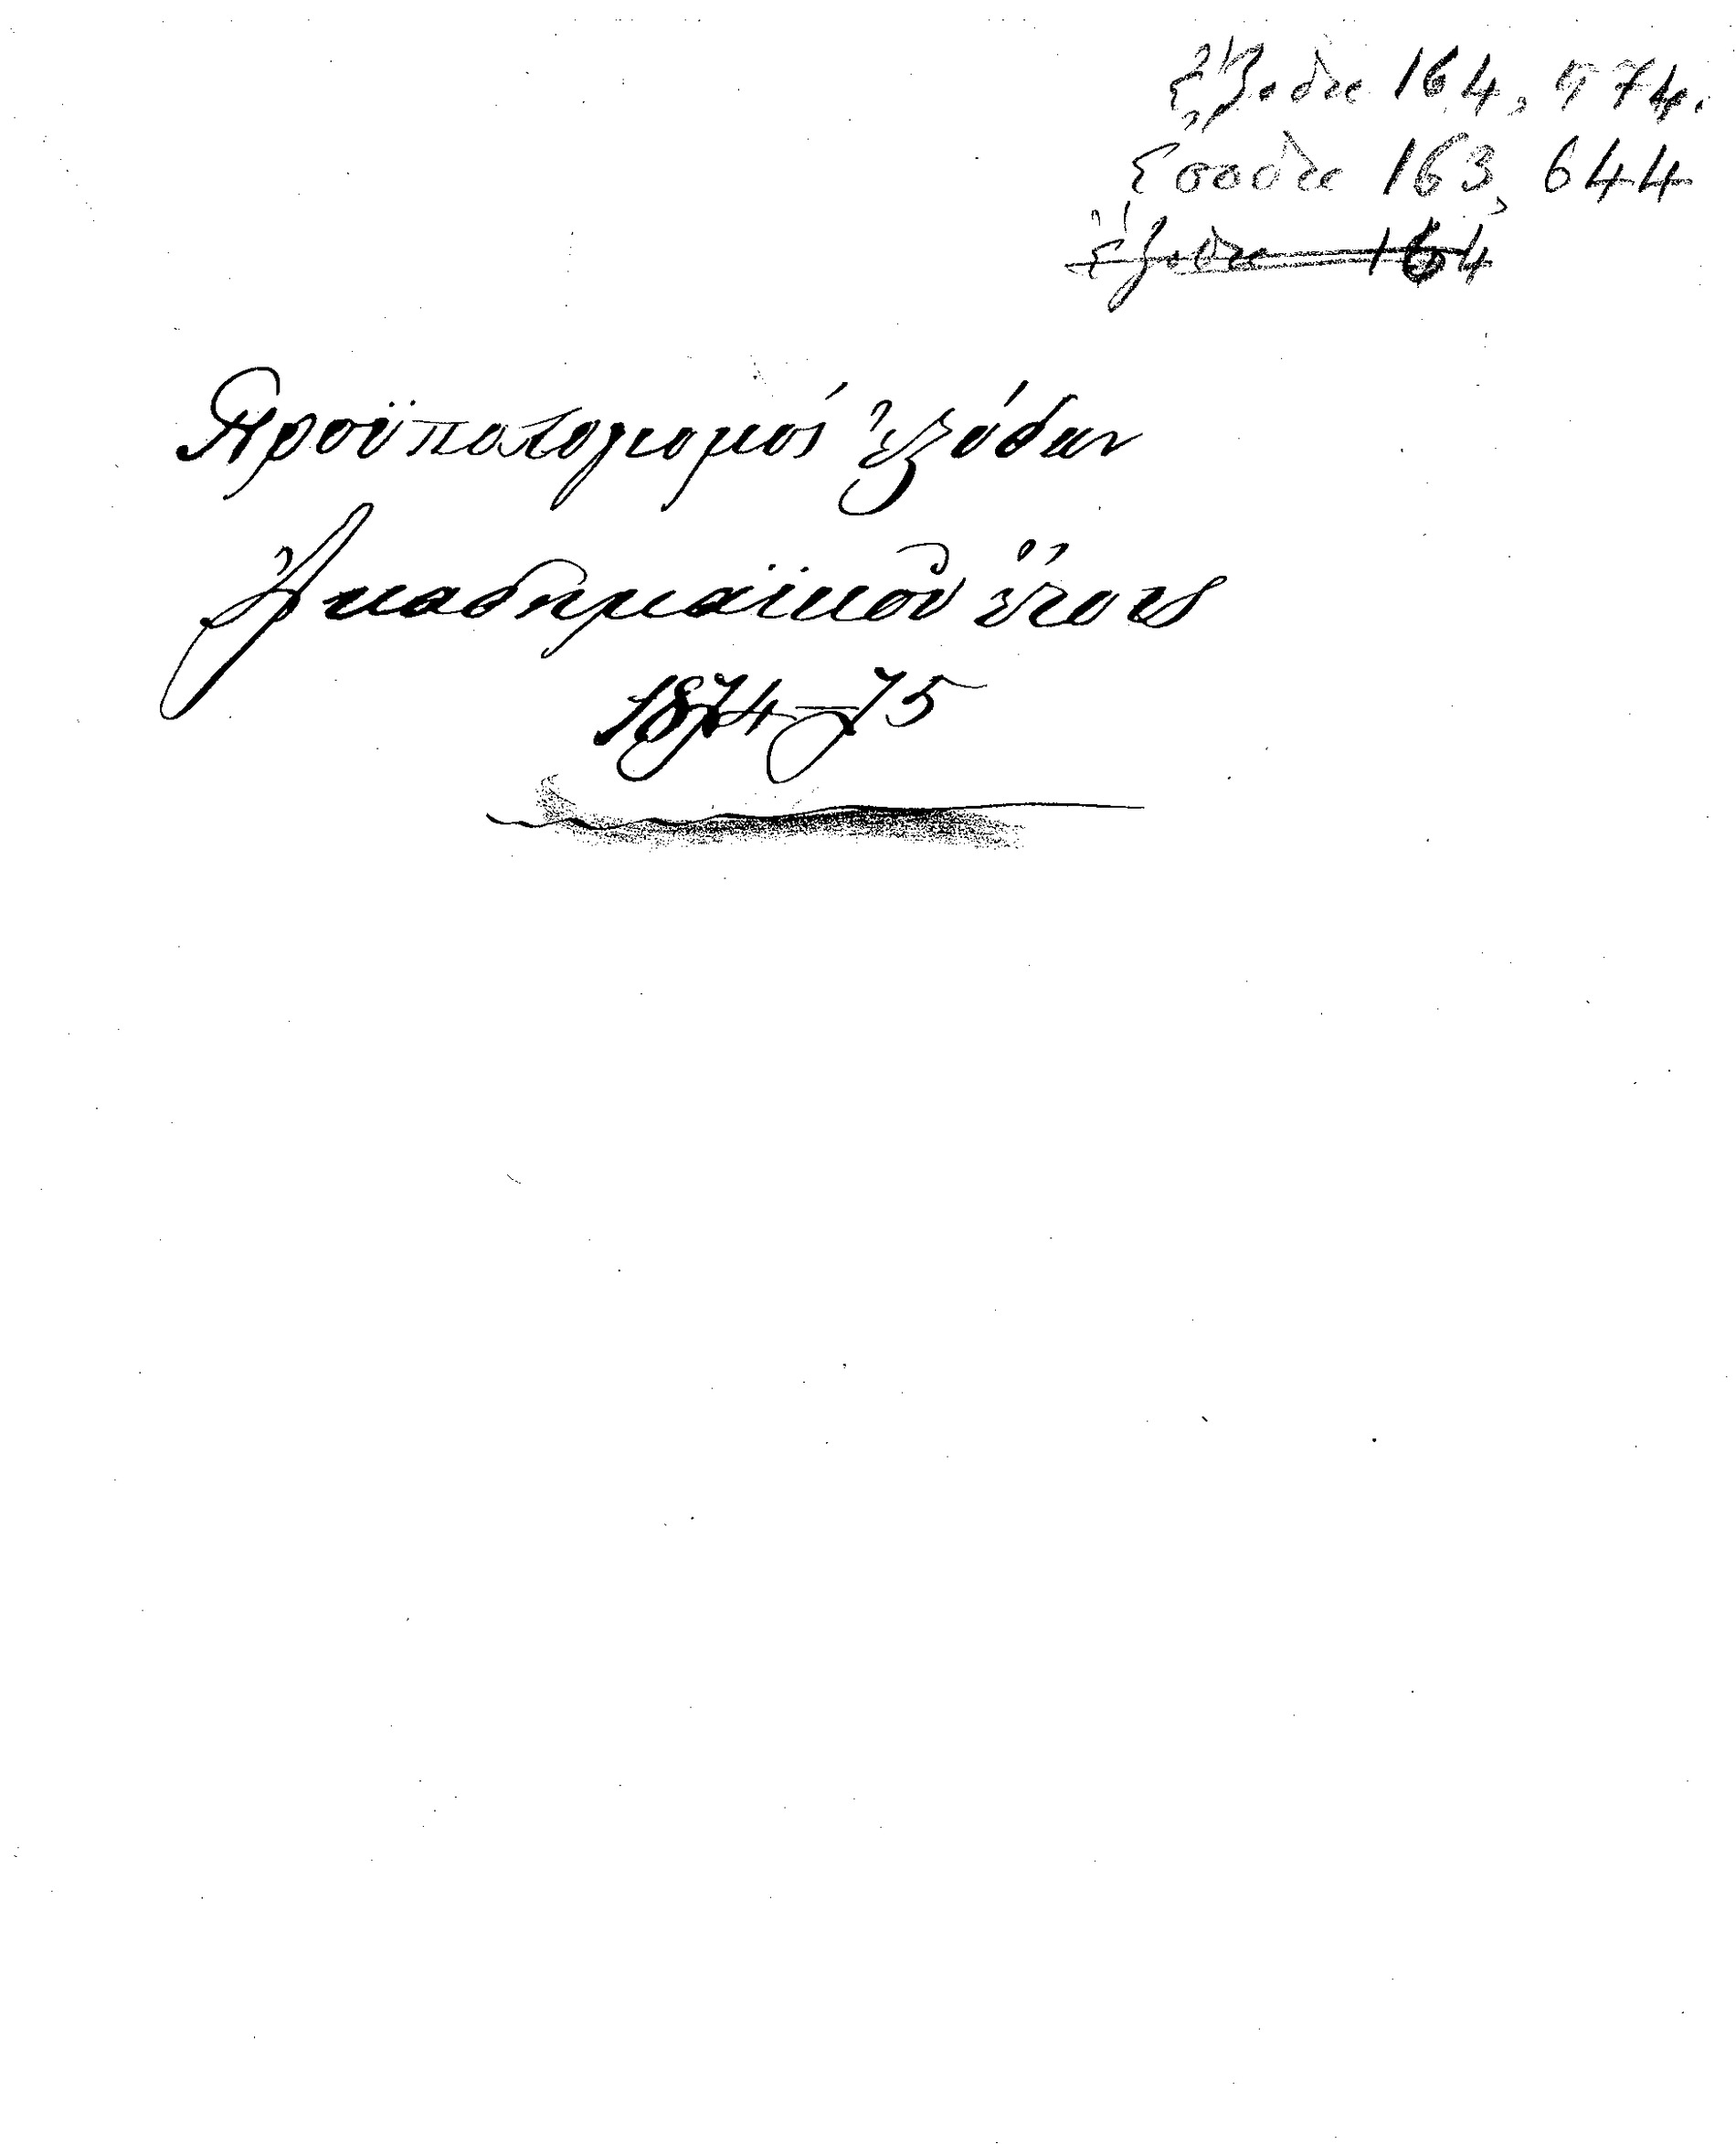 ἔξοδα 164,574.
ἔσοδα 163,644
ἔξοδα 164
Προϋπολογισμός ἐξόδων
Ἀκαδημαϊκοῦ ἔτους
1874-75